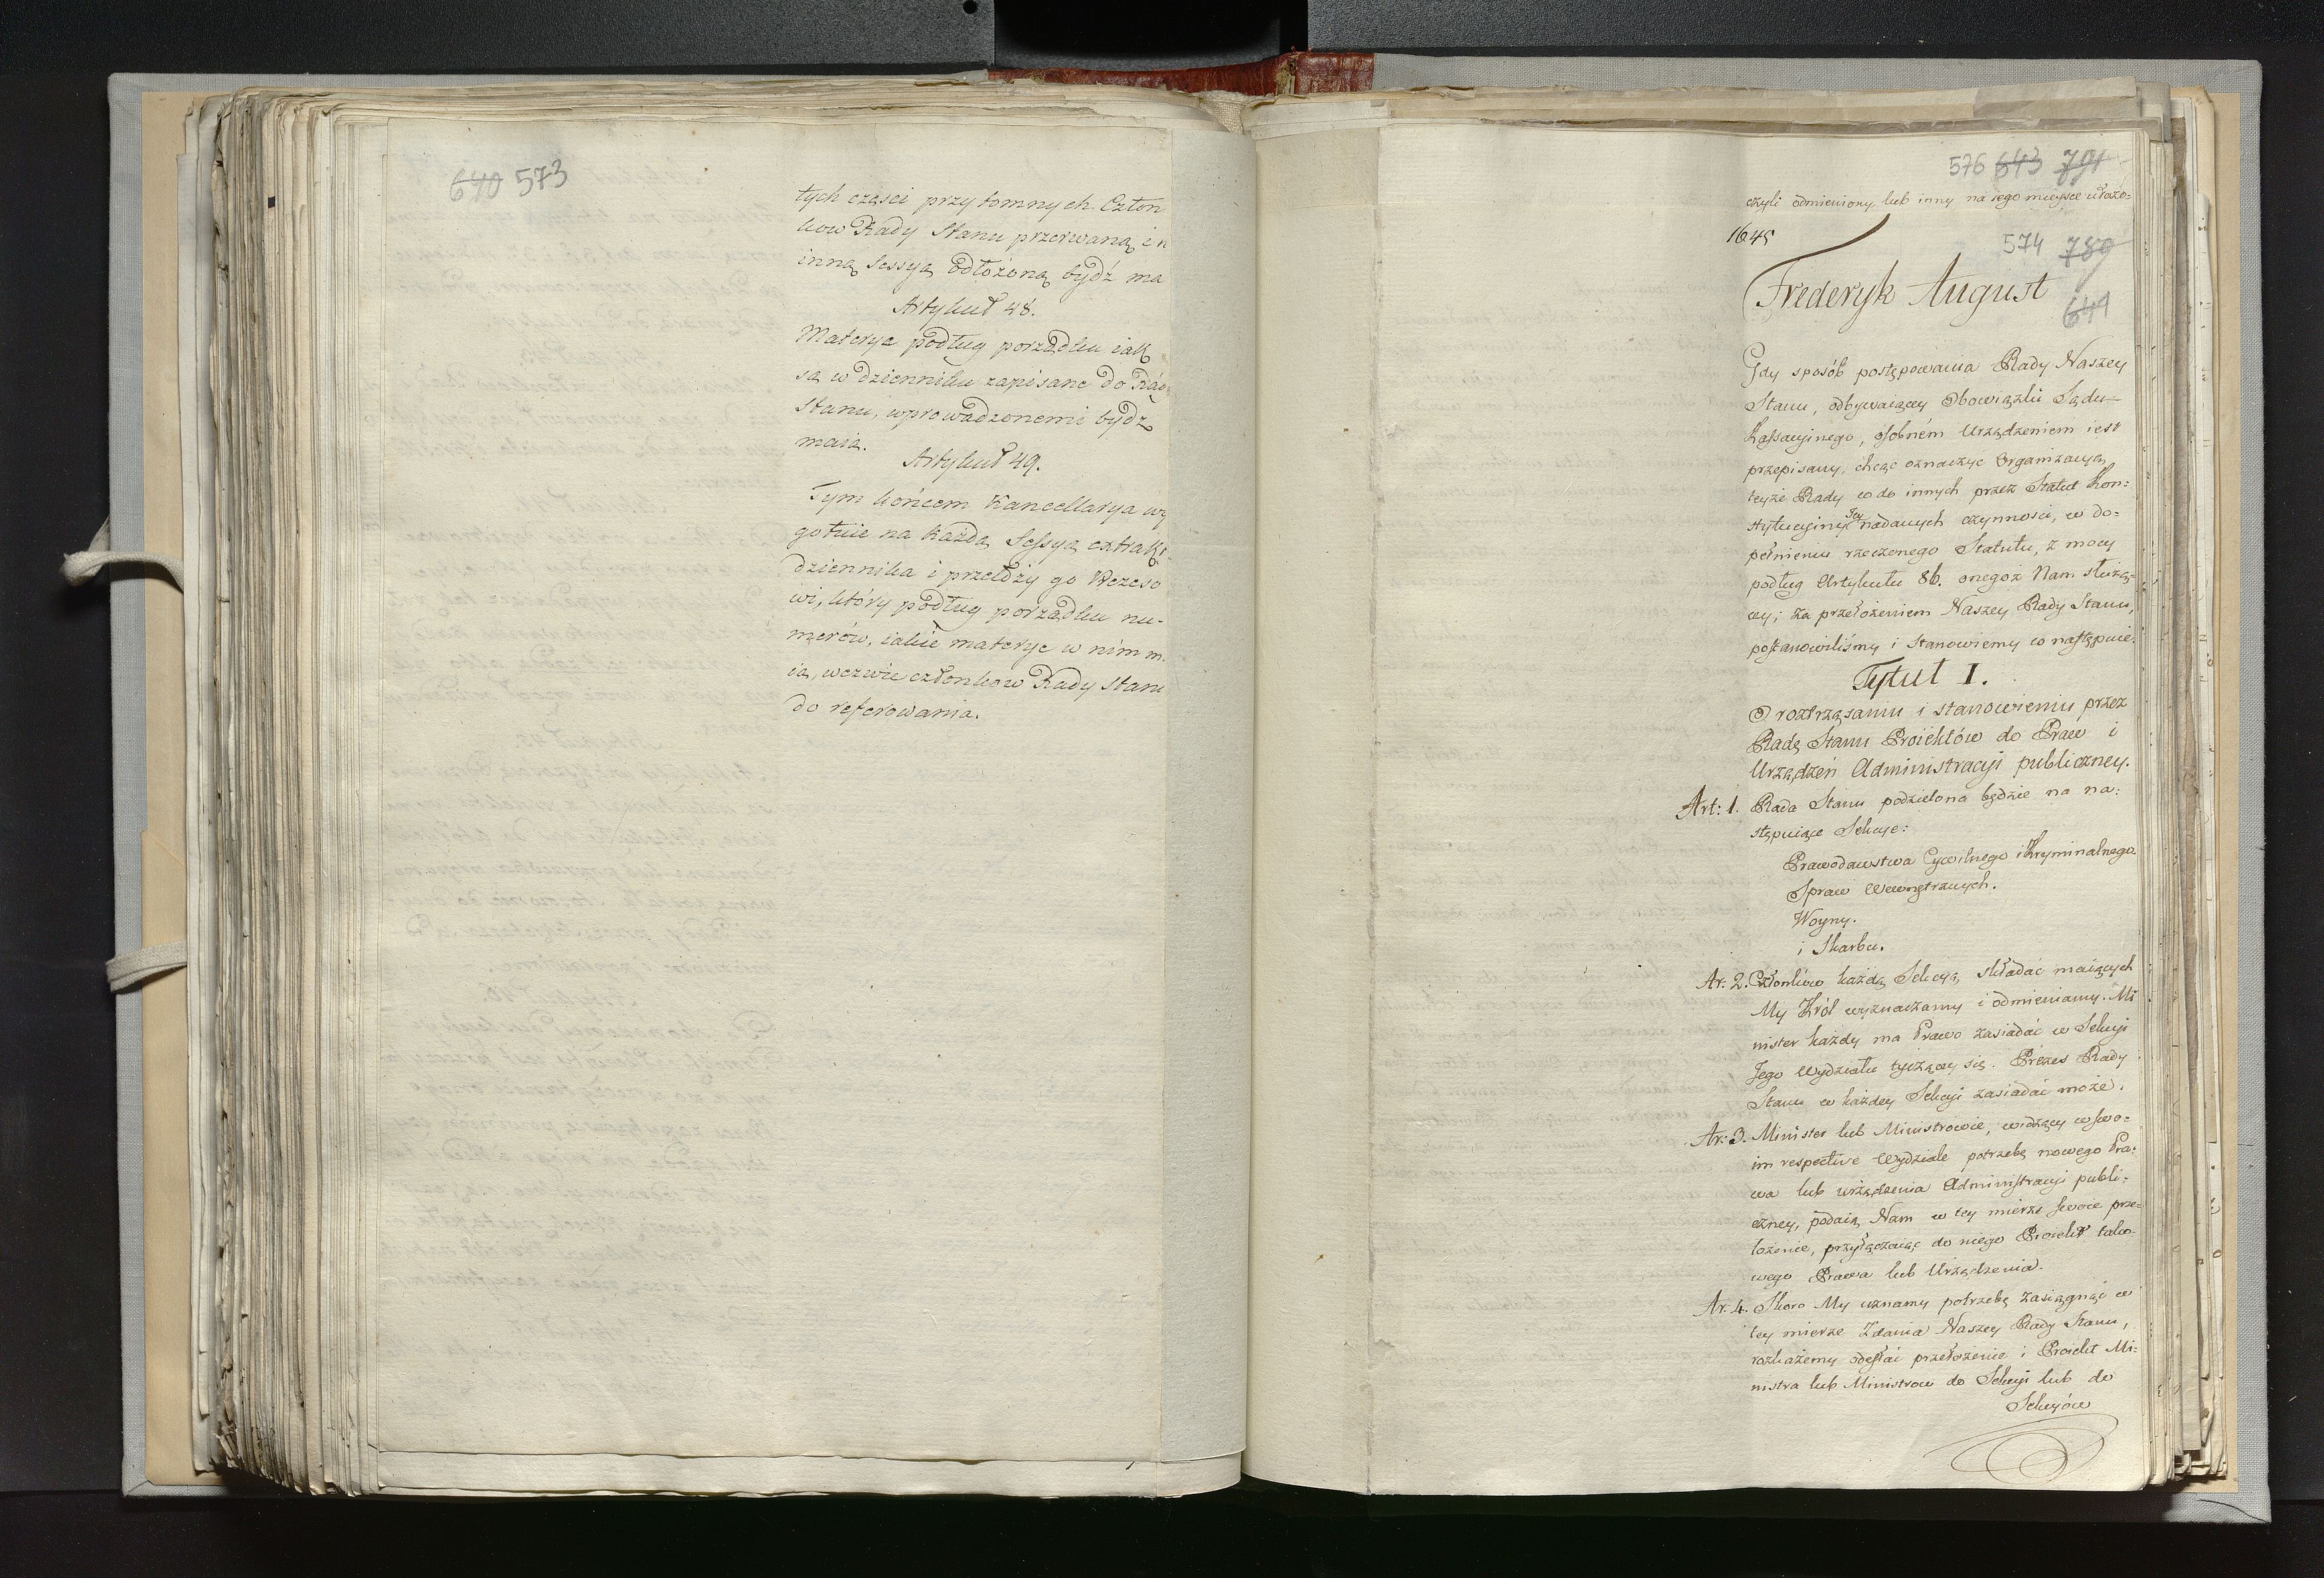 640 573
tych części przytomnych Człon
kow Rady Stanu przerwaną i n
inną Sessyą odłożoną bydź ma
Artykuł 48.
Materye podług porządku iak
są w dzienniku zapisane do Rad
Stanu, wprowadzonemi bydź
maią.
Artykuł 49.
Tym końcem Kancellarya wy
gotuie na każdą Sessyą extrakt
dziennika i przełoży go Prezeso
wi, który podług porządku nu-
merów, iakie materye w nim m
ią, wezwie członkow Rady Stanu
do referowania.
576 643 791
czyli odmieniony, lub inny na iego mieysce ułożo=
1645
574 789
Frederyk August
641
Gdy sposób postępowania Rady Naszey
Stanu, odbywaiącey Obowiązki Sądu
Kassacyinego, osobném Urządzeniem iest
przepisany, chcąc oznaczyć Organizacyą
teyże Rady co do innych przez Statut Kon=
stytucyiny Jey nadanych czynności, w do=
pełnieniu rzeczonego Statutu, z mocy
podług Artykułu 86. onegoż Nam służą=
cey; za przełożeniem Naszey Rady Stanu,
postanowiliśmy i Stanowiemy co następuie:
Tytuł I.
O roztrząsaniu i stanowieniu przez
Radę Stanu Proiektów do Praw i
Urządzeń Administracyi publiczney.
Art: 1. Rada Stanu podzielona będzie na na=
stępuiące Sekcye:
Prawodawstwa Cywilnego i Kryminalnego
Spraw Wewnętrznych.
Woyny.
i Skarbu.
Ar: 2. Członków każdą Sekcyą składać maiących
My Król wyznaczamy i odmieniamy. Mi
nister każdy ma Prawo zasiadać w Sekcyi
Jego Wydziału tyczącey się. Prezes Rady
Stanu w każdey Sekcyi zasiadać może.
Ar: 3. Minister lub Ministrowie, widzący w swo=
im respective Wydziale potrzebę nowego Pra=
wa lub urządzenia Administracyi publi=
czney, podaią Nam w tey mierze swoie prze=
łożenie, przyłączaiąc do niego Proiekt tako=
wego Prawa lub Urządzenia.
Ar: 4. Skoro My uznamy potrzebę zasiągnąć w
tey mierze Zdania Naszey Rady Stanu,
rozkażemy odesłać przełożenie i Proiekt Mi=
nistra lub Ministrow do Sekcyi lub do
Sekcyów